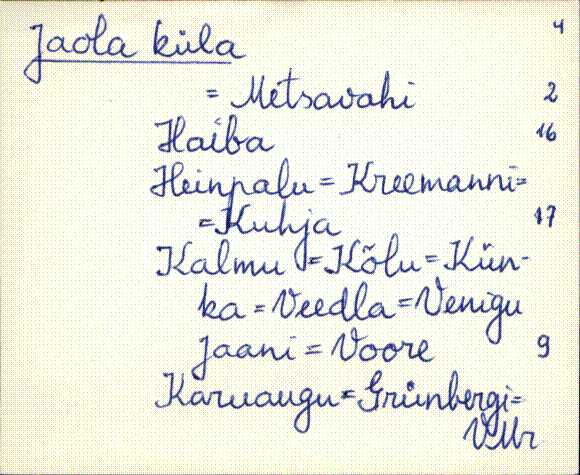 Jaola küla 4
= Metsavahi 2
Haiba 16
Heinpalu = Kreemanni =
= Kuhja 17
Kalmu = Kõlu = Kün-
ka = Veedla = Venigu
Jaani = Voore 9
Karuaugu = Grünbergi =
VMr